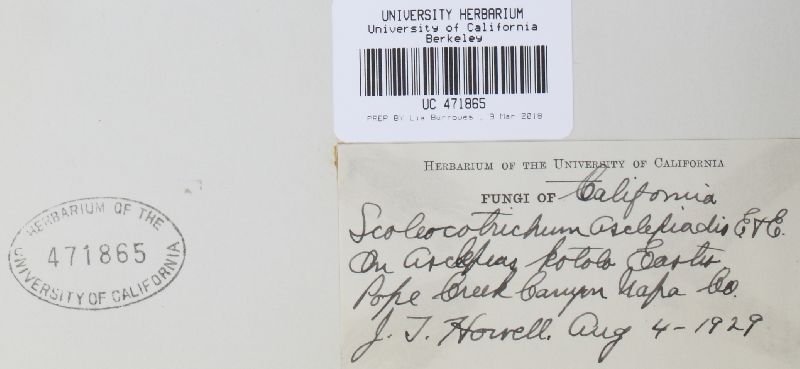 UNIVERSITY HERBARIUM
University of California
Berkeley
UC 471865
PREP BY Lia Burroues , 9 Mar 2018
HERBARIUM OF THE UNIVERSITY OF CALIFORNIA
FUNGI OF California
Scolecotrichum asclepiadis E&E.
On Asclepias kotolo Eastw
Pope Creek Canyon Napa Co.
J. T. Howell. Aug 4-1929
HERBARIUM OF THE
471865
UNIVERSITY OF CALIFORNIA